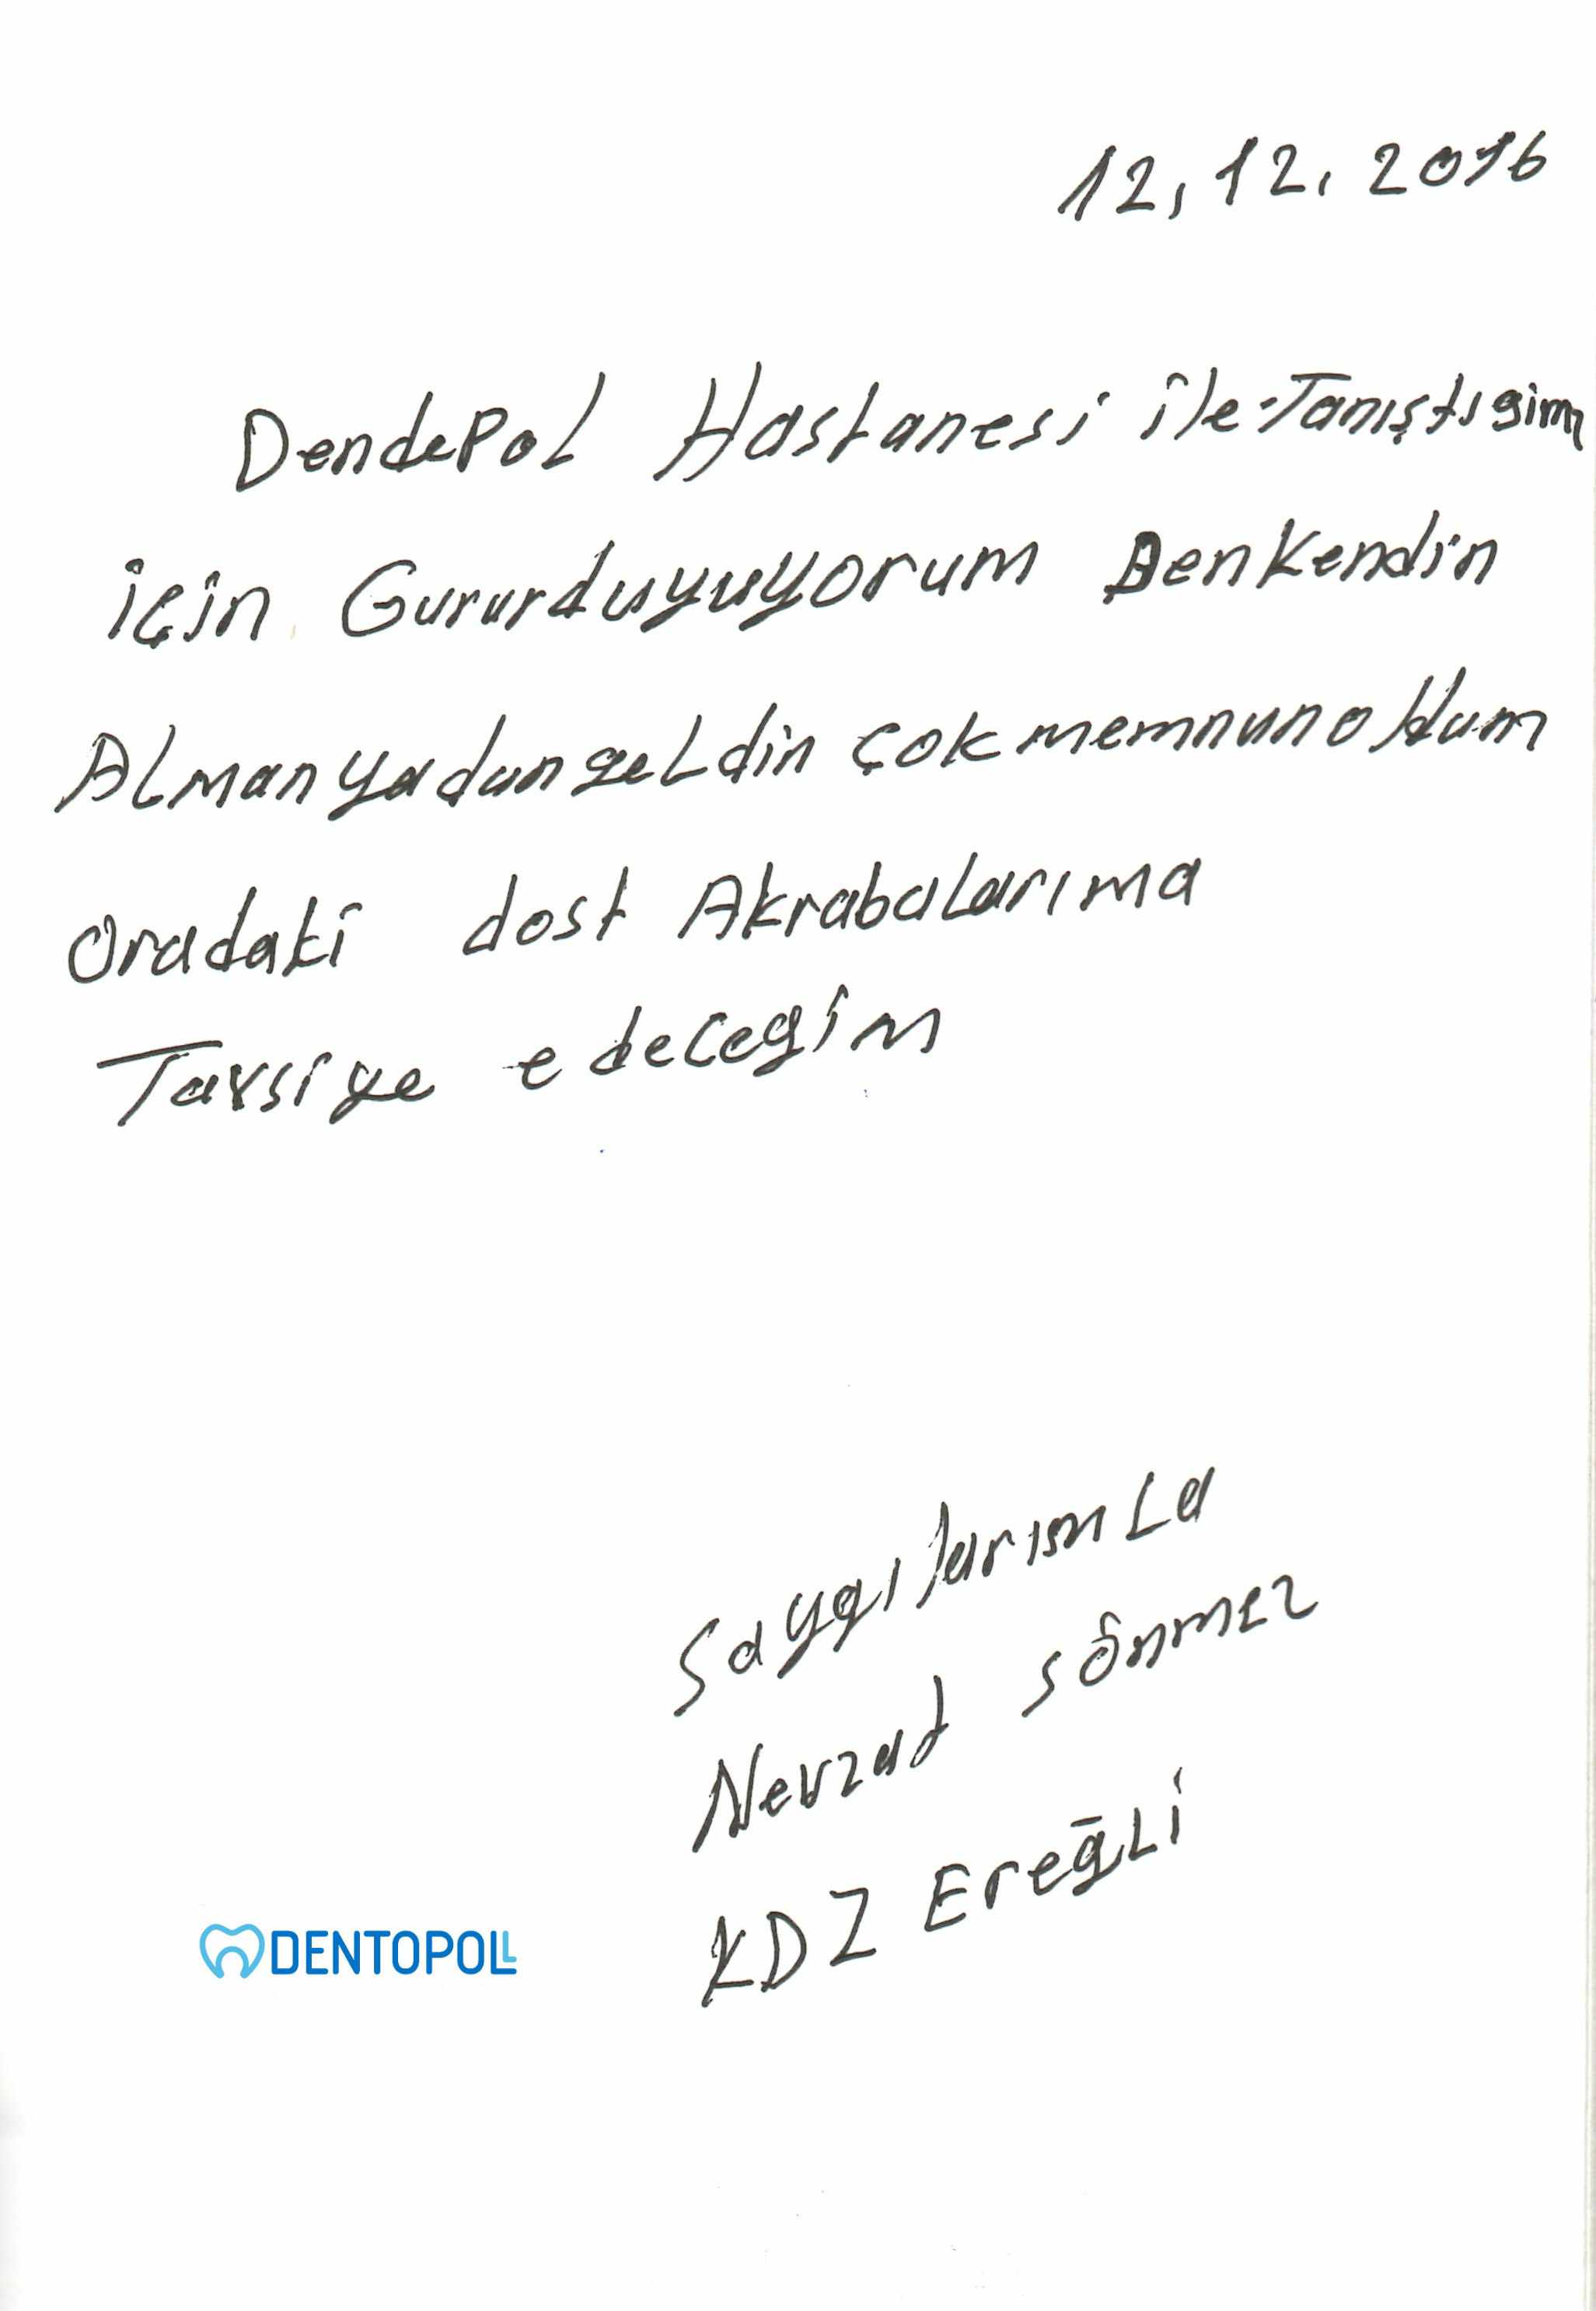 12,12,2016
Dendepol Hastanesi ile Tanıştıgim
için Gururduyuyorum Benkendin
Almanyadangeldin çokmemnunoldum
Oradaki dost Akrabalarıma
Tavsiye edecegim
Saygılarımla
Nevzat sönmez
KDZ Ereğli
DENTOPOLL